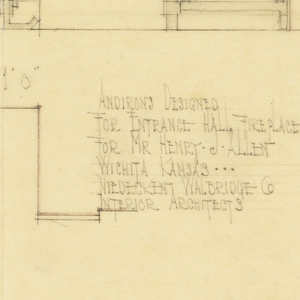 1'0"
ANDIRONS DESIGNED
FOR ENTRANCE HALL FIREPLACE
FOR MR HENRY · J · ALLEN
WICHITA KANSAS ···
NIEDECKEN WALBRIDGE CO
INTERIOR ARCHITECTS